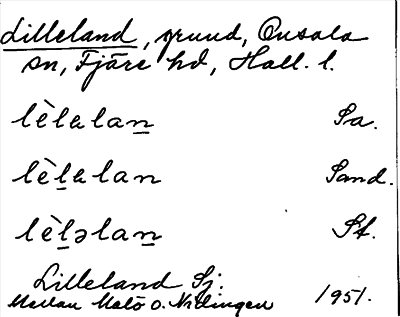 Lilleland, grund, Onsala
sn, Fjäre hd, Hall. l.
lèlalan Sa.
lèlalan Sand.
lèlələn St.
Lilleland Sj.
Mellan Malö o. Nidingen 1951.